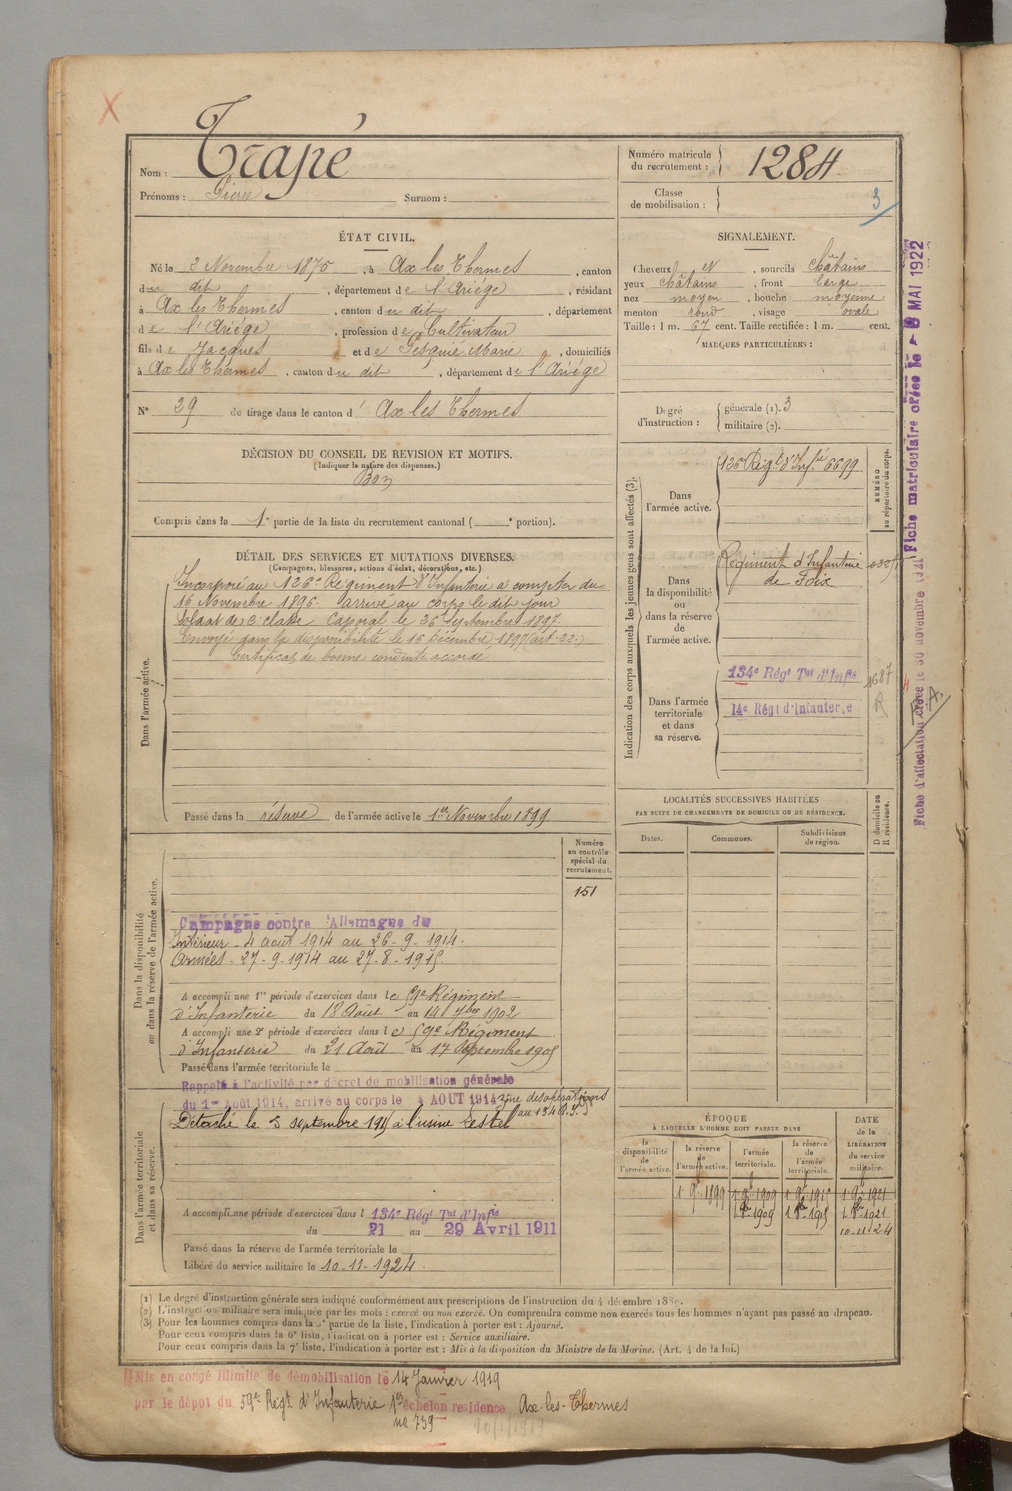 Nom : Trapé
Prénoms : Pierre Surnom :
Numéro matricule du recrutement : 1284
Classe de mobilisation :
3
ÉTAT CIVIL.
Né le 2 Novembre 1875, à Ax les Thermes, canton
du dit, département de l'Ariège, résidant
à Ax les Thermes, canton du dit, département
de l'Ariège, profession de Cultivateur
fils de Jacques et de Marie, domiciliés
à Ax les Thermes, canton du dit, département de l'Ariège
N° 29 de tirage dans le canton d' Ax les Thermes
SIGNALEMENT.
Cheveux et, sourcils châtains
yeux châtains, front large
nez moyen, bouche moyenne
menton rond, visage ovale
Taille : 1 m. 67 cent. Taille rectifiée : 1 m. cent.
MARQUES PARTICULIÈRES :
Degré d'instruction : générale (1). 3
militaire (2).
DÉCISION DU CONSEIL DE REVISION ET MOTIFS.
(Indiquer la nature des dispenses.)
Bon
Compris dans la 1e partie de la liste du recrutement cantonal ( e portion).
Indication des corps auxquels les jeunes gens sont affectés (3).
NUMÉRO au répertoire du corps.
Dans l'armée active.
126e Régt d'Infie 6699
Dans la disponibilité ou dans la réserve de l'armée active.
Régiment d'Infanterie
de Foix
Dans l'armée territoriale et dans sa réserve.
134e Régt Tal d'Infie
14e Régt d'Infanterie
R
DÉTAIL DES SERVICES ET MUTATIONS DIVERSES.
(Campagnes, blessures, actions d'éclat, décorations, etc.)
Dans l'armée active.
Incorporé au 126e Régiment d'Infanterie à compter du
16 Novembre 1896. arrivé au corps le dit jour
soldat de 2e classe Caporal le 26 Septembre 1897
Envoyé dans la disponibilité le 15 Décembre 1897 (art. 22.)
Certificat de bonne conduite accordé
Passé dans la réserve de l'armée active le 1er Novembre 1899
Numéro au contrôle spécial du recrutement.
151
Dans la disponibilité ou dans la réserve de l'armée active.
Campagne contre l'Allemagne du
Intérieur - 4 août 1914 au 26-9-1914.
Armées - 27-9-1914 au 27-8-1915.
A accompli une 1re période d'exercices dans le 59e Régiment
d'Infanterie du 18 Août au 14 7bre 1902
A accompli une 2e période d'exercices dans le 59e Régiment
d'Infanterie du 21 Août au 17 Septembre 1905
Passé dans l'armée territoriale le
Dans l'armée territoriale et dans sa réserve.
Rappelé à l'activité par décret de mobilisation générale
du 1er Août 1914, arrivé au corps le 4 AOUT 1914
Détaché le 3 septembre 1915 à l'usine
A accompli une période d'exercices dans l 134e Régt Tal d'Infie
du 21 au 29 Avril 1911
Passé dans la réserve de l'armée territoriale le
Libéré du service militaire le 10-11-1924.
LOCALITÉS SUCCESSIVES HABITÉES
PAR SUITE DE CHANGEMENTS DE DOMICILE OU DE RÉSIDENCE.
Dates. Communes. Subdivisions de région. D domicile ou R résidence.
ÉPOQUE
À LAQUELLE L'HOMME DOIT PASSER DANS
la disponibilité de l'armée active.
la réserve de l'armée active.
l'armée territoriale.
la réserve de l'armée territoriale.
DATE de la LIBÉRATION du service militaire.
1 9bre 1899 1 9bre 1909 1 9bre 1915 1 9bre 1921
10-11-24
(1) Le degré d'instruction générale sera indiqué conformément aux prescriptions de l'instruction du 4 décembre 1889.
(2) L'instruction militaire sera indiquée par les mots : exercé ou non exercé. On comprendra comme non exercés tous les hommes n'ayant pas passé au drapeau.
(3) Pour les hommes compris dans la 5e partie de la liste, l'indication à porter est : Ajourné.
Pour ceux compris dans la 6e liste, l'indication à porter est : Service auxiliaire.
Pour ceux compris dans la 7e liste, l'indication à porter est : Mis à la disposition du Ministre de la Marine. (Art. 4 de la loi.)
Mis en congé illimité de démobilisation le 14 Janvier 1919
par le dépôt du 59e Régt d'Infanterie 1er échelon residence Ax-les-Thermes
no 739
Fiche matriculaire créée le 8 MAI 1922
Fiche d'affectation créée le 30 novembre 1921